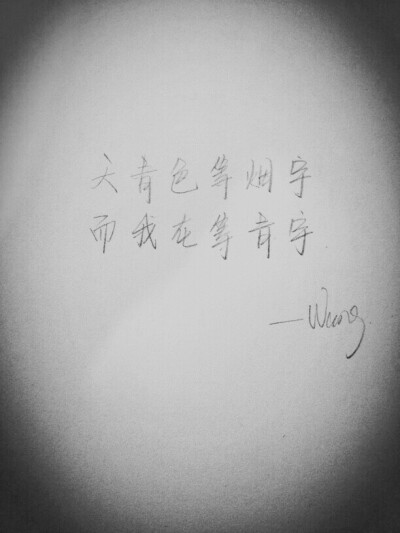 天青色等烟宇
而我在等育宇
—Wung